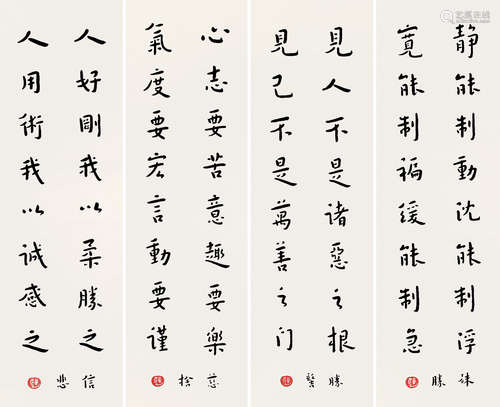 静能制動沈能制浮
寬能制褊緩能制急
見人不是諸惡之根
見己不是萬善之门
勝髻
心志要苦意趣要樂
氣度要宏言動要謹
慈捨
人好剛我以柔勝之
人用術我以誠感之
信悲